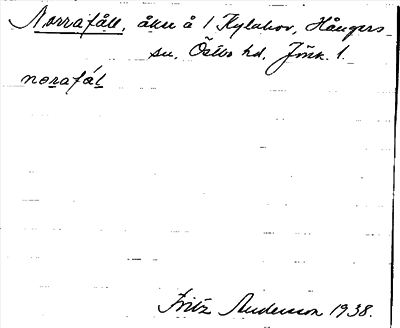 Norrafåll, åker å 1 Kylahov, Hångers
sn. Östbo hd. Jönk. l.
norafál
Fritz Andersson 1938.